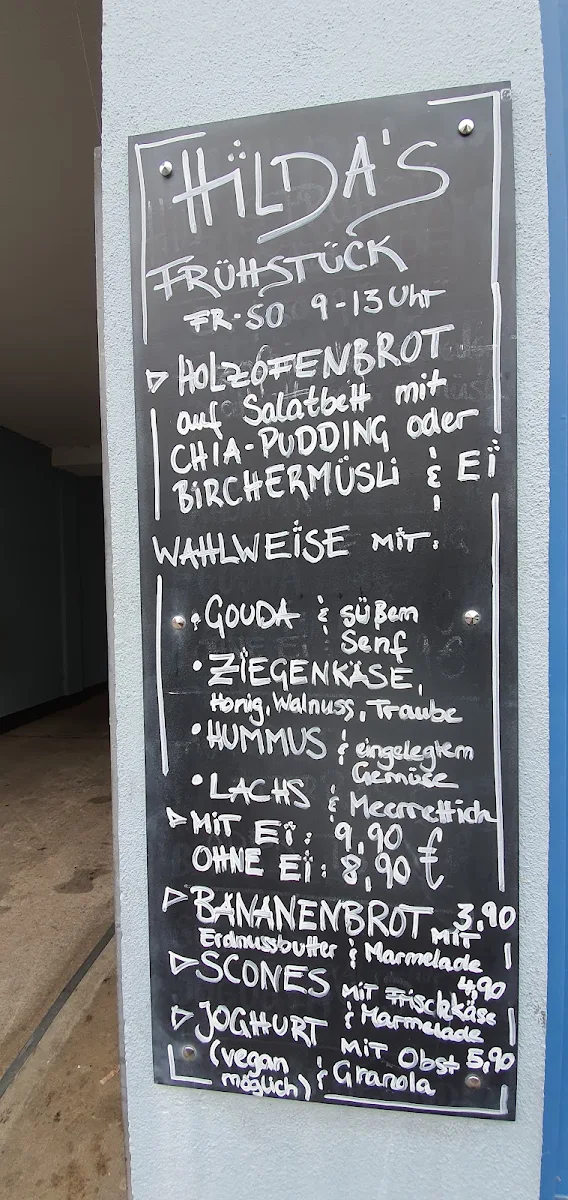 HILDA'S
FRÜHSTÜCK
FR-SO 9-13 Uhr
▷ HOLZOFENBROT
auf Salatbett mit
CHIA-PUDDING oder
BIRCHERMÜSLI & EI
WAHLWEISE MIT:
• GOUDA & süßem
Senf
• ZIEGENKÄSE,
Honig, Walnuss, Traube
• HUMMUS & eingelegtem
Gemüse
• LACHS & Meerrettich
▷ MIT EI: 9,90 €
OHNE EI: 8,90 €
▷ BANANENBROT MIT 3,90
Erdnussbutter & Marmelade
▷ SCONES MIT Frischkäse 4,90
& Marmelade
▷ JOGHURT MIT Obst 5,90
(vegan & Granola
möglich)